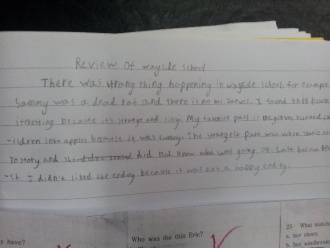 Review Of wayside school
There was strang thing happening in wayside school, for exampe
Sammy was a dead rat and there is no mr. Zarves. I found this book
intresting because it's strange and silly. My favorite part is Mrs gorf turned chi
-ldren into apples because it was funny. The strangest part was when
story and did not know what was going on. Late
-it. I didn't liked the ending because it was not a happy ending.
have?
Who was the thin Eric?
25 What
a. her shoes
b. her